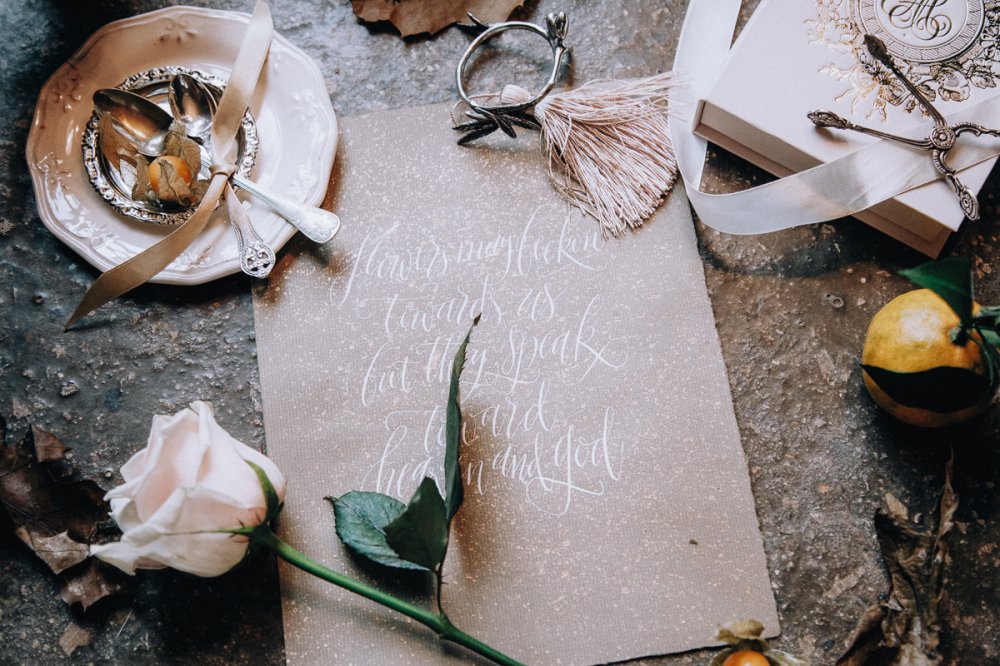 flowers may beckon
towards us
but they speak
toward
heaven and god